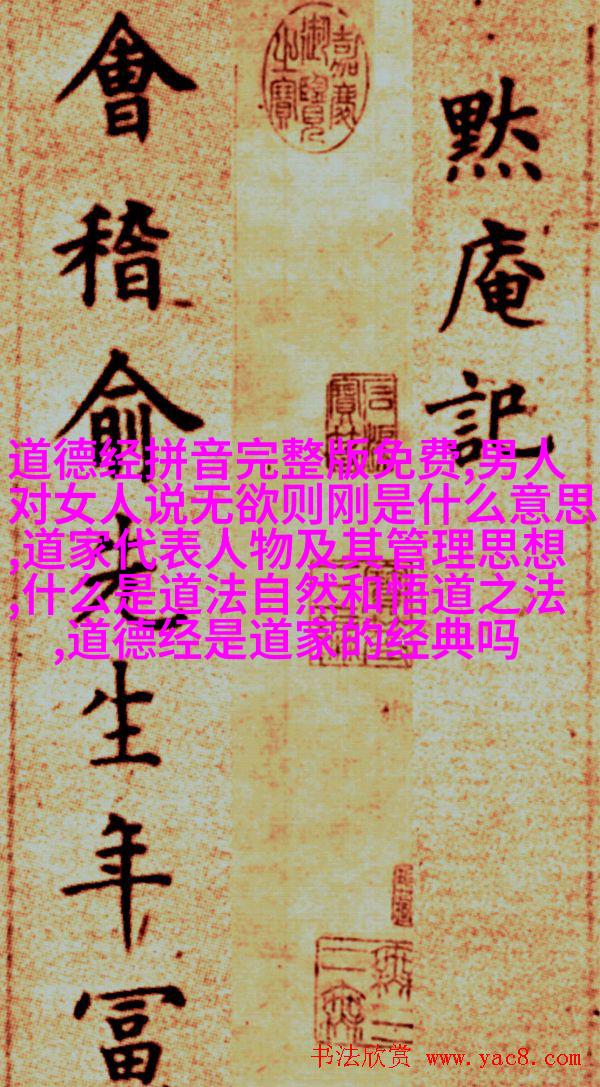 默庵記
會稽俞先生年冨
嘉慶御覽之寶
道德经拼音完整版免费,男人
对女人说无欲则刚是什么意思
,道家代表人物及其管理思想
,什么是道法自然和悟道之法
,道德经是道家的经典吗
书法欣赏 www.yac8.com